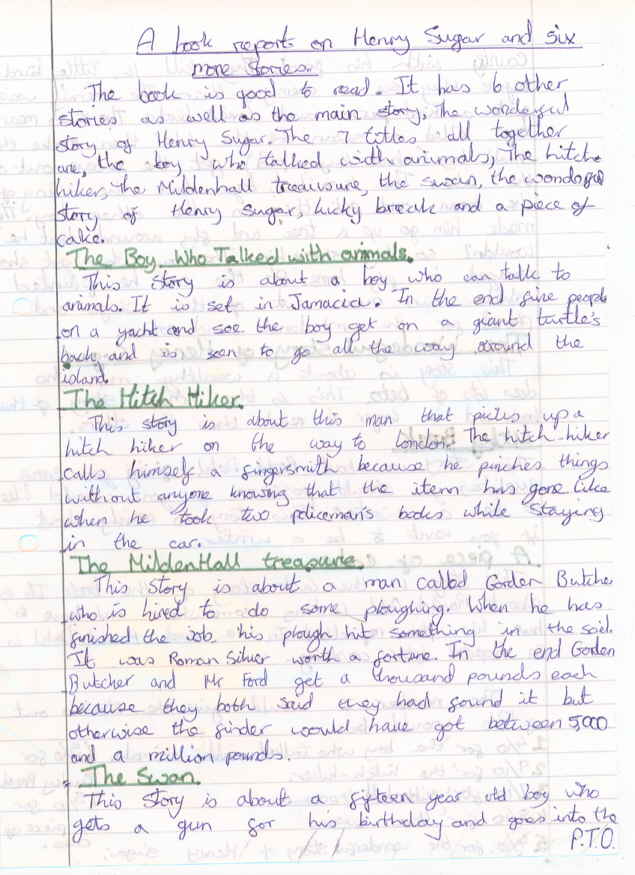 A book report on Henry Sugar and six
more stories.
The book is good to read. It has 6 other
stories as well as the main story, The wonderful
story of Henry Sugar. The 7 titles all together
are, the boy who talked with animals, The hitch
hiker, the Mildenhall treausure, the swan, the wonderful
story of Henry Sugar, lucky break and a piece of
cake.
The Boy Who Talked with animals.
This story is about a boy who can talk to
animals. It is set in Jamacia. In the end five people
on a yacht and see the boy get on a giant turtle's
back and is seen to go all the way around the
island.
The Hitch Hiker.
This story is about this man that picks up a
hitch hiker on the way to London. The hitch-hiker
calls himself a fingersmith because he pinches things
without anyone knowing that the item has gone. Like
when he took two policeman's books while staying
in the car.
The MildenHall treasure.
This story is about a man called Gorden Butcher
who is hired to do some ploughing. When he has
finished the job his plough hit something in the soil.
It was Roman Silver worth a fortune. In the end Gorden
Butcher and Mr Ford get a thousand pounds each
because they both said they had found it but
otherwise the finder would have got between 5000
and a million pounds.
The Swan.
This story is about a fifteen year old boy who
gets a gun for his birthday and goes into the
P.T.O.